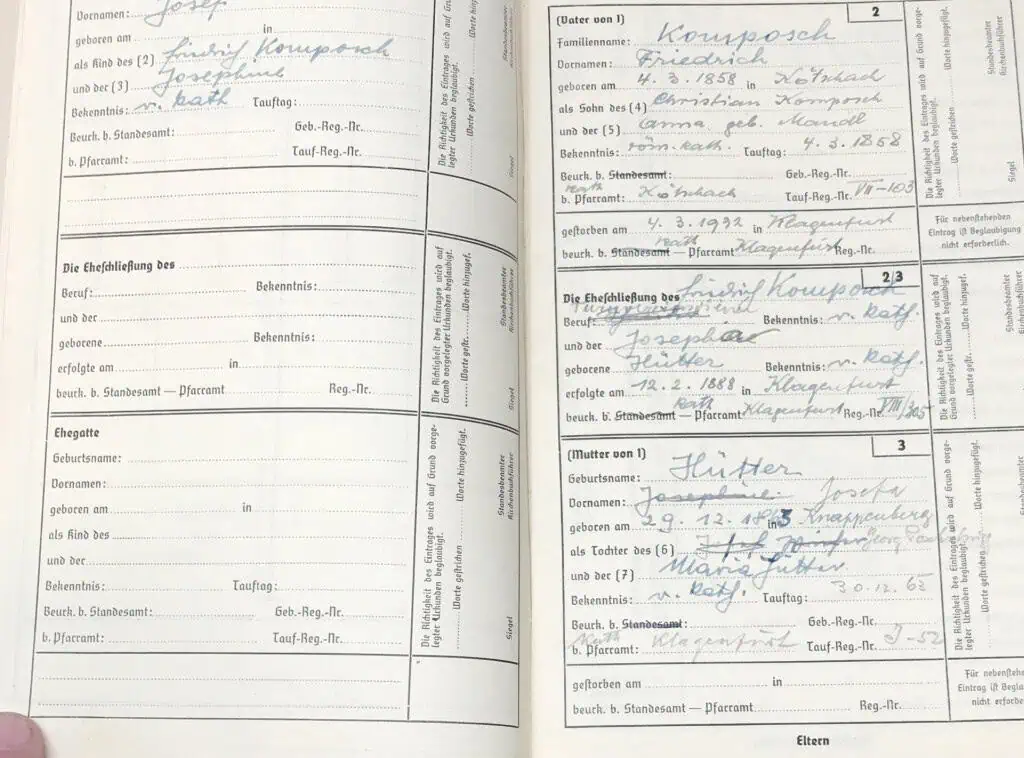 Vornamen: Josef
geboren am in
als Kind des (2) Friedrich Komposch
und der (3) Josephine
Bekenntnis: r. kath Tauftag:
Beurk. b. Standesamt: Geb.-Reg.-Nr.
b. Pfarramt: Tauf-Reg.-Nr.
Die Richtigkeit des Eintrages wird auf Grund vorgelegter Urkunden beglaubigt.
Worte gestrichen Worte hinzugefügt.
Standesbeamter
Kirchenbuchführer
Siegel
Die Eheschließung des
Beruf: Bekenntnis:
und der
geborene Bekenntnis:
erfolgte am in
beurk. b. Standesamt — Pfarramt Reg.-Nr.
Die Richtigkeit des Eintrages wird auf Grund vorgelegter Urkunden beglaubigt.
Worte gestr. Worte hinzugef.
Standesbeamter
Kirchenbuchführer
Siegel
Ehegatte
Geburtsname:
Vornamen:
geboren am in
als Kind des
und der
Bekenntnis: Tauftag:
Beurk. b. Standesamt: Geb.-Reg.-Nr.
b. Pfarramt: Tauf-Reg.-Nr.
Die Richtigkeit des Eintrages wird auf Grund vorgelegter Urkunden beglaubigt.
Worte gestrichen Worte hinzugefügt.
Standesbeamter
Kirchenbuchführer
Siegel
(Vater von 1) 2
Familienname: Komposch
Vornamen: Friedrich
geboren am 4. 3. 1858 in Kötschach
als Sohn des (4) Christian Komposch
und der (5) Anna geb. Mandl
Bekenntnis: röm. kath. Tauftag: 4. 3. 1858
Beurk. b. Standesamt: Geb.-Reg.-Nr.
kath
b. Pfarramt: Kötschach Tauf-Reg.-Nr. VII-103
Die Richtigkeit des Eintrages wird auf Grund vorgelegter Urkunden beglaubigt.
Worte gestrichen Worte hinzugefügt.
Standesbeamter
Kirchenbuchführer
Siegel
gestorben am 4. 3. 1932 in Klagenfurt
kath
beurk. b. Standesamt — Pfarramt Klagenfurt Reg.-Nr.
Für nebenstehenden
Eintrag ist Beglaubigung
nicht erforderlich.
2/3
Die Eheschließung des Friedrich Komposch
Beruf: Bekenntnis: r. kath.
und der Josepha
geborene Hütter Bekenntnis: r. kath.
erfolgte am 12. 2. 1888 in Klagenfurt
kath
beurk. b. Standesamt — Pfarramt Klagenfurt Reg.-Nr. VIII/305
Die Richtigkeit des Eintrages wird auf Grund vorgelegter Urkunden beglaubigt.
Worte gestr. Worte hinzugef.
Standesbeamter
Kirchenbuchführer
Siegel
(Mutter von 1) 3
Geburtsname: Hütter
Vornamen: Josephine Josefa
geboren am 29. 12. in Knappenberg
als Tochter des (6) Josef Georg
und der (7) Maria Hütter
Bekenntnis: r. kath. Tauftag: 30.12.65
Beurk. b. Standesamt: Geb.-Reg.-Nr.
Kath
b. Pfarramt: Klagenfurt Tauf-Reg.-Nr. I-52
Die Richtigkeit des Eintrages wird auf Grund vorgelegter Urkunden beglaubigt.
Worte gestrichen Worte hinzugefügt.
gestorben am in
beurk. b. Standesamt — Pfarramt Reg.-Nr.
Für nebenstehe
Eintrag ist Beglau
nicht erforde
Eltern